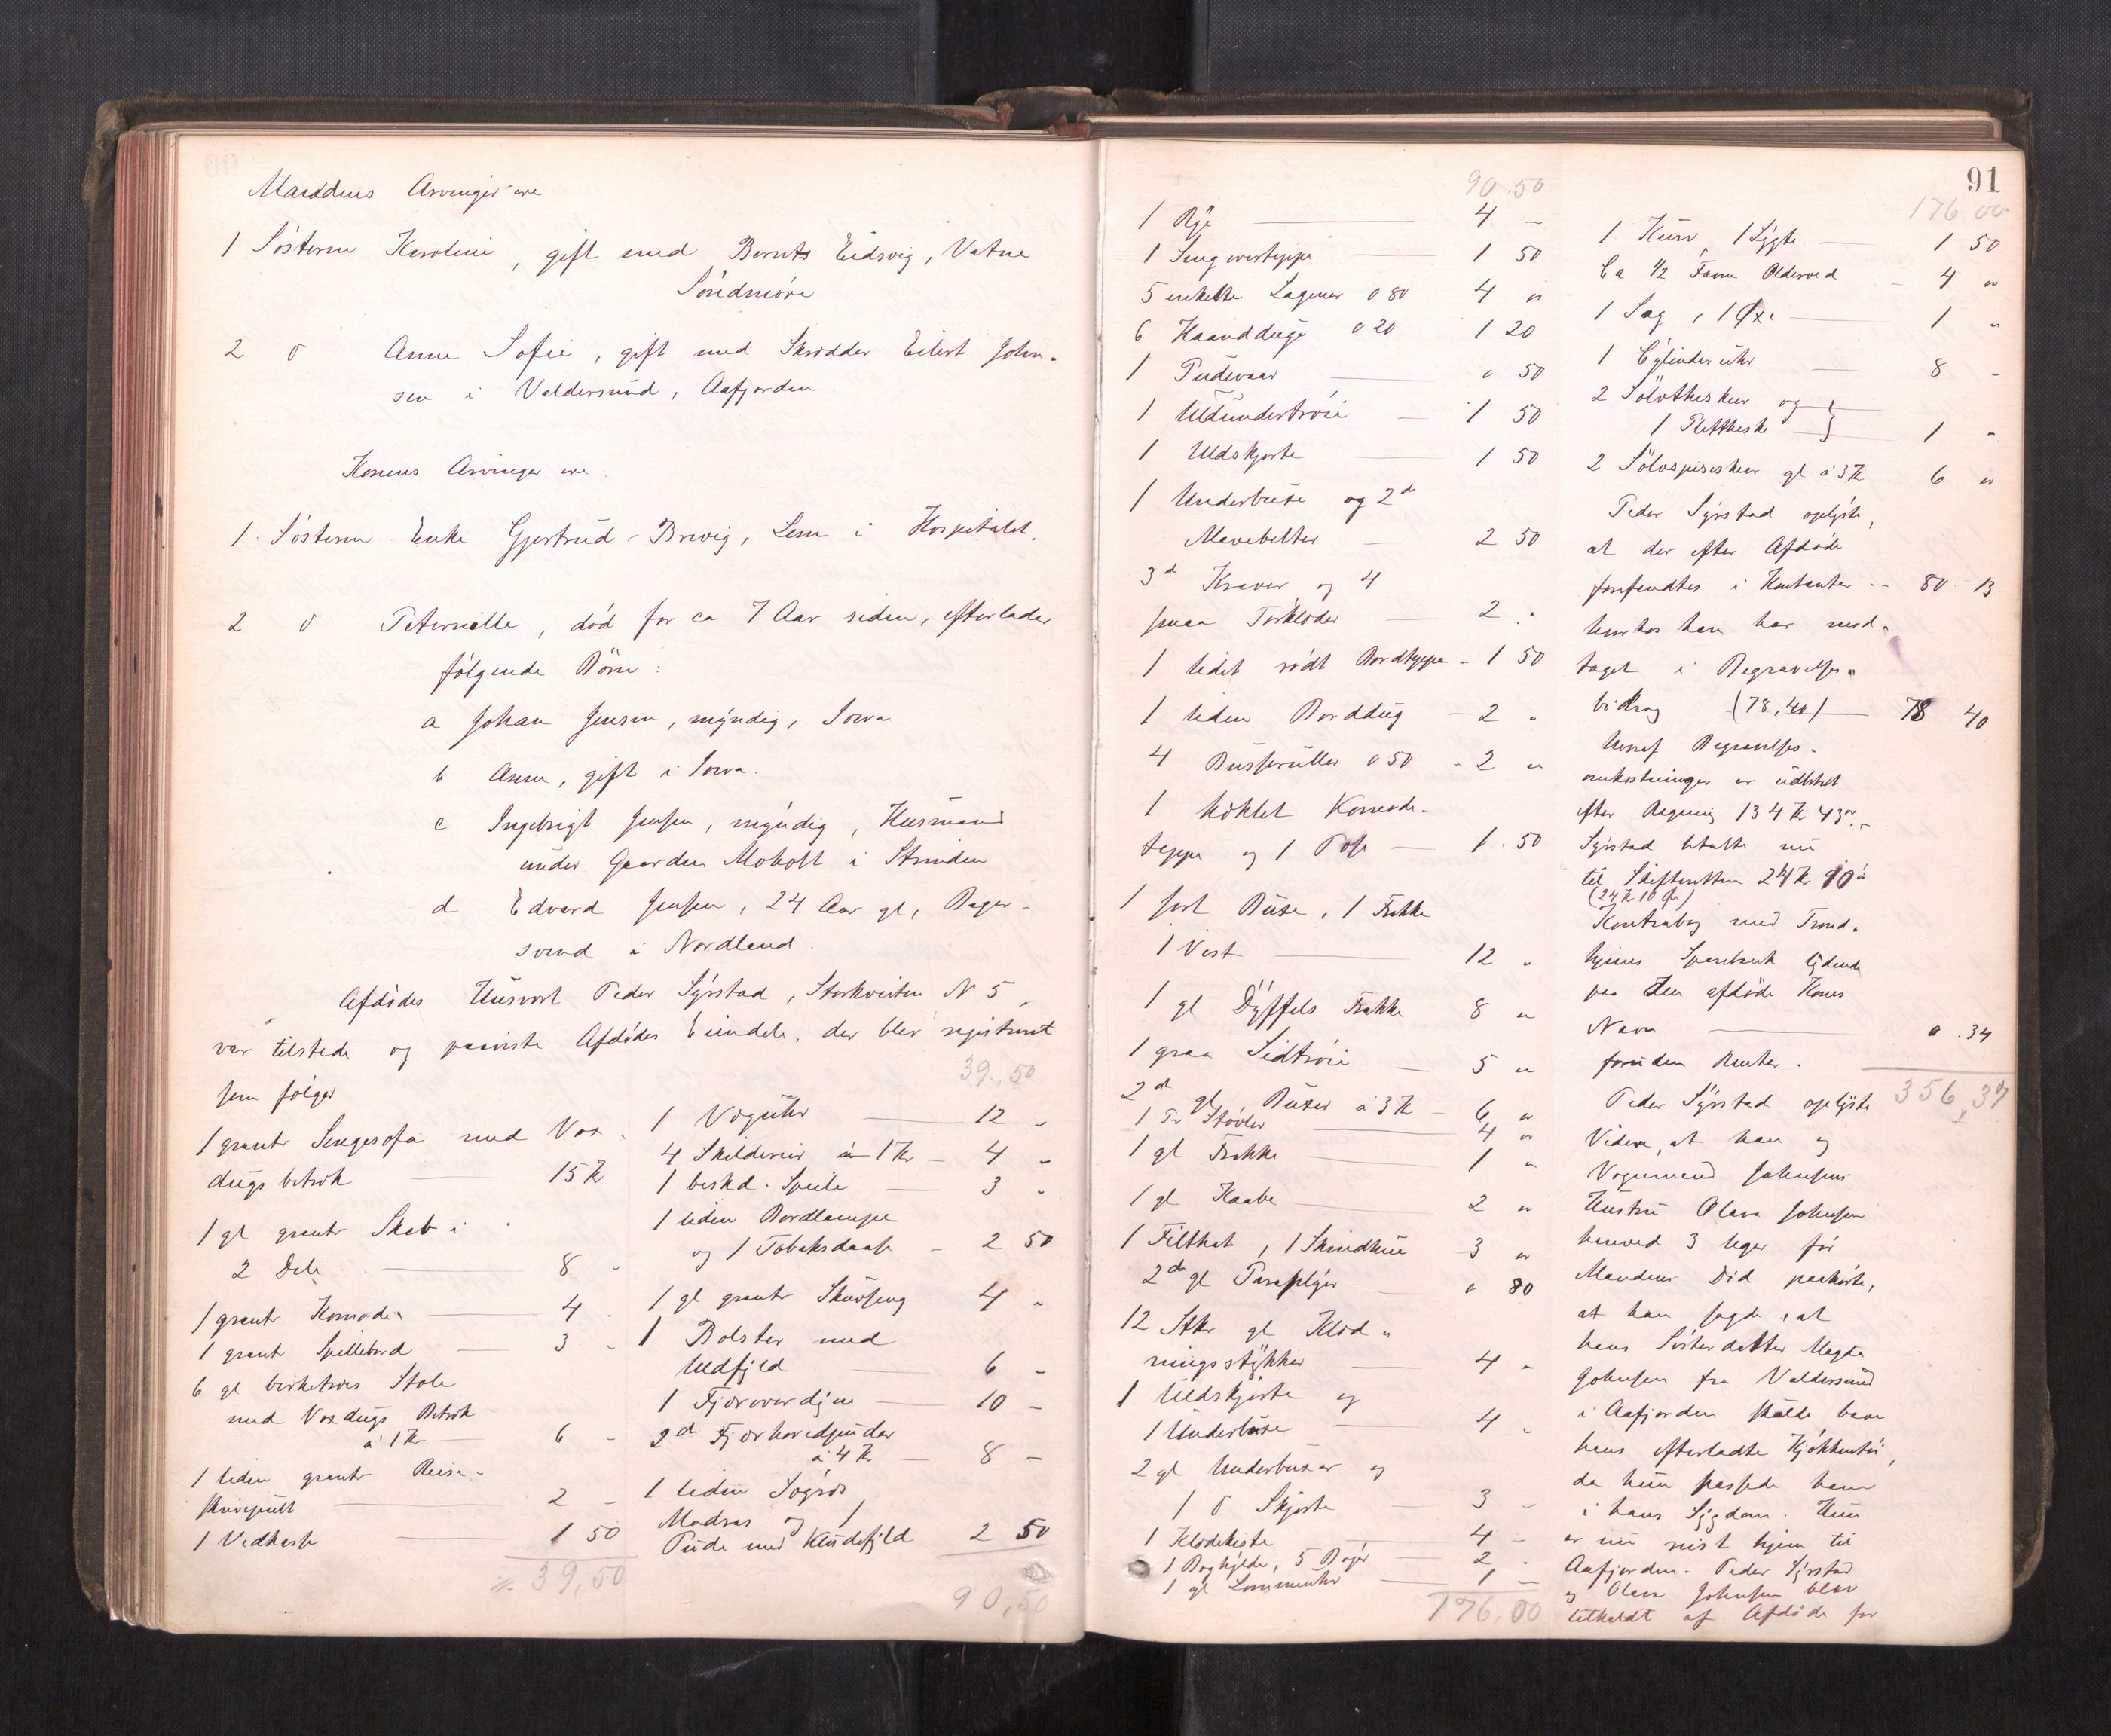 Mandens Arvinger ere
1 Søsteren Karoline, gift med Bernts Eidsvig, Vatne
Søndmøre
2 d Anne Sofie, gift med Skrædder Eilert John-
sen i Valdersund, Aafjorden
Konens Arvinger ere:
1. Søsteren Enke Gjertrud Brevig, Lem i Hospitalet.
2 d Peternille, død for ca 7 Aar siden, efterlader
følgende Børn:
a Johan Jensen, myndig, Iowa
b Anne, gift i Iowa.
c Ingebrigt Jensen, myndig, Husmand
under Gaarden Moholt i Strinden
d Edvard Jensen, 24 Aar gl, Bager-
svend i Nordland.
Afdødes Husvert Peder Syrstad, Storkvisten N 5,
var tilstede og paaviste Afdødes Eiendele, der blev registreret
som følger
1 grantr Sengesofa med Vox-
dugs betræk 15 Kr
1 gl grantr Skab i
2 Dele 8 -
1 grantr Komode 4 -
1 grantr Spillebord 3 -
6 gl birketræs Stole
med Voxdugs Betræk
à 1 Kr 6 -
1 liden grantr Reise-
skrivepult 2 -
1 Vedkasse 1 50
39,50
39,50
1 Væguhr 12 -
4 Skilderier à 1 Kr 4 -
1 beskd. Speile 3 -
1 liden Bordlampe
og 1 Tobaksdaase 2 50
1 gl grantr Skuvseng 4 -
1 Bolster med
Uldfyld 6 -
1 Fjæroverdyne 10 -
2d Fjærhovedpuder
à 4 Kr 8 -
1 liden Søgræs
Madras og 1
Pude med Kludefyld 2 50
90,50
91
90.50
1 Rye 4 -
1 Sengovertæppe 1 50
5 enkelte Lagener o 80 4 "
6 Haandduge o 20 1 20
1 Pudevaar " 50
1 Uldundertrøie 1 50
1 Uldskjorte 1 50
1 Underbuxe og 2de
Mavebelter 2 50
3d Kraver og 4
smaa Tørklæder 2 "
1 lidet rødt Bordtæppe 1 50
1 liden Borddug 2 "
4 Busseruller o 50 2 "
1 hæklet Komode-
tæppe og 1 Pose 1.50
1 sort Buxe, 1 Frakke
1 Vest 12 "
1 gl Dyffels Frakke 8 "
1 graa Sidtrøie 5 "
2d gl Buxer à 3 Kr 6 "
1 Pr Støvler 4 "
1 gl Frakke 1 "
1 gl Kaabe 2 "
1 Filthat, 1 Skindhue 3 "
2de gl Paraplyer " 80
12 Stkr gl Klæd-
ningsstykker 4 "
1 Uldskjorte og
1 Underbuxe 4 "
2 gl Underbuxer og
1 d Skjorte 3 -
1 Klædekiste 4 -
1 Boghylde, 5 Bøger 2 "
1 gl Lommeuhr 1 -
176.00
176 00
1 Kurv, 1 Lygte 1 50
Ca 1/2 Favn Olderved 4 "
1 Sag, 1 Øxe 1 "
1 Cylinderuhr 8 -
2 Sølvtheskeer og
1 Pletttheske } 1 "
2 Sølvspiseskeer gl à 3 Kr 6 "
Peder Syrstad oplyste,
at der efter Afdøde
forefandtes i Kontanter 80 13
hvorhos han har mod-
taget i Begravelses-
bidrag (78,40) 78 40
hvoraf Begravelses-
omkostninger er udbetalt
efter Regning 134 Kr 43 ør.
Syrstad betalte nu
til Skifteretten 24 Kr 10 ø
(24 Kr 10 Øre)
Kontrabog med Trond-
hjems Sparebank lydende
paa den afdøde Kones
Navn " .34
foruden Renter.
356,37
Peder Syrstad oplyste
videre, at han og
Vognmand Johnsens
Hustru Olava Johnsen
henved 3 Uger før
Mandens Død paahørte,
at han sagde, at
hans Søsterdatter Magda
Johnsen fra Valdersund
i Aafjorden skulde have
hans efterladte Kjøkkentøi,
da hun passede ham
i hans Sygdom. Hun
er nu reist hjem til
Aafjorden. Peder Syrstad
og Olava Johnsen blev
tilkaldt af Afdøde for